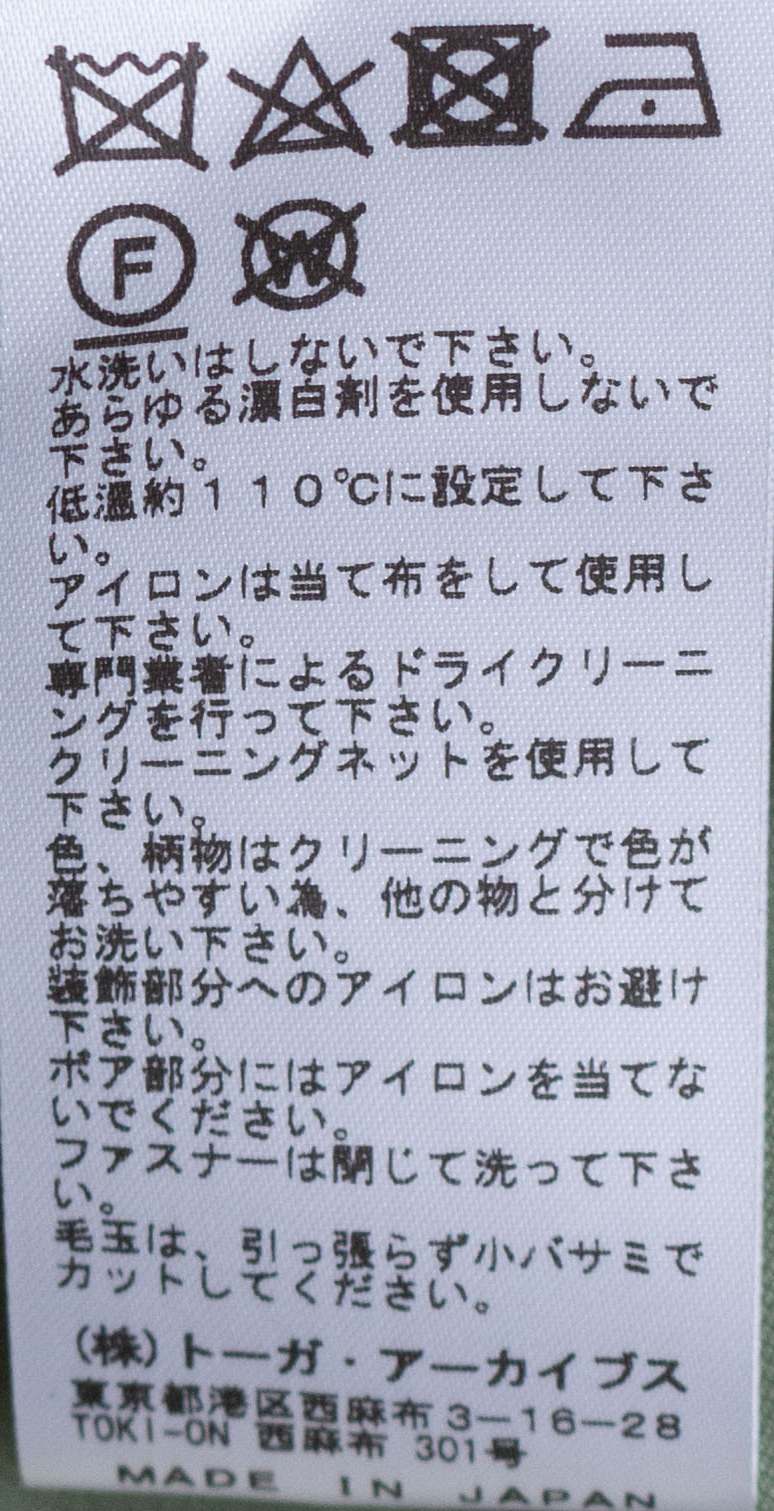 F W
水洗いはしないで下さい。
あらゆる漂白剤を使用しないで
下さい。
低温約１１０℃に設定して下さ
い。
アイロンは当て布をして使用し
て下さい。
専門業者によるドライクリーニ
ングを行って下さい。
クリーニングネットを使用して
下さい。
色、柄物はクリーニングで色が
落ちやすい為、他の物と分けて
お洗い下さい。
装飾部分へのアイロンはお避け
下さい。
ボア部分にはアイロンを当てな
いでください。
ファスナーは閉じて洗って下さ
い。
毛玉は、引っ張らず小バサミで
カットしてください。
(株)トーガ・アーカイブス
東京都港区西麻布3−16−28
TOKI-ON 西麻布 301号
MADE IN JAPAN